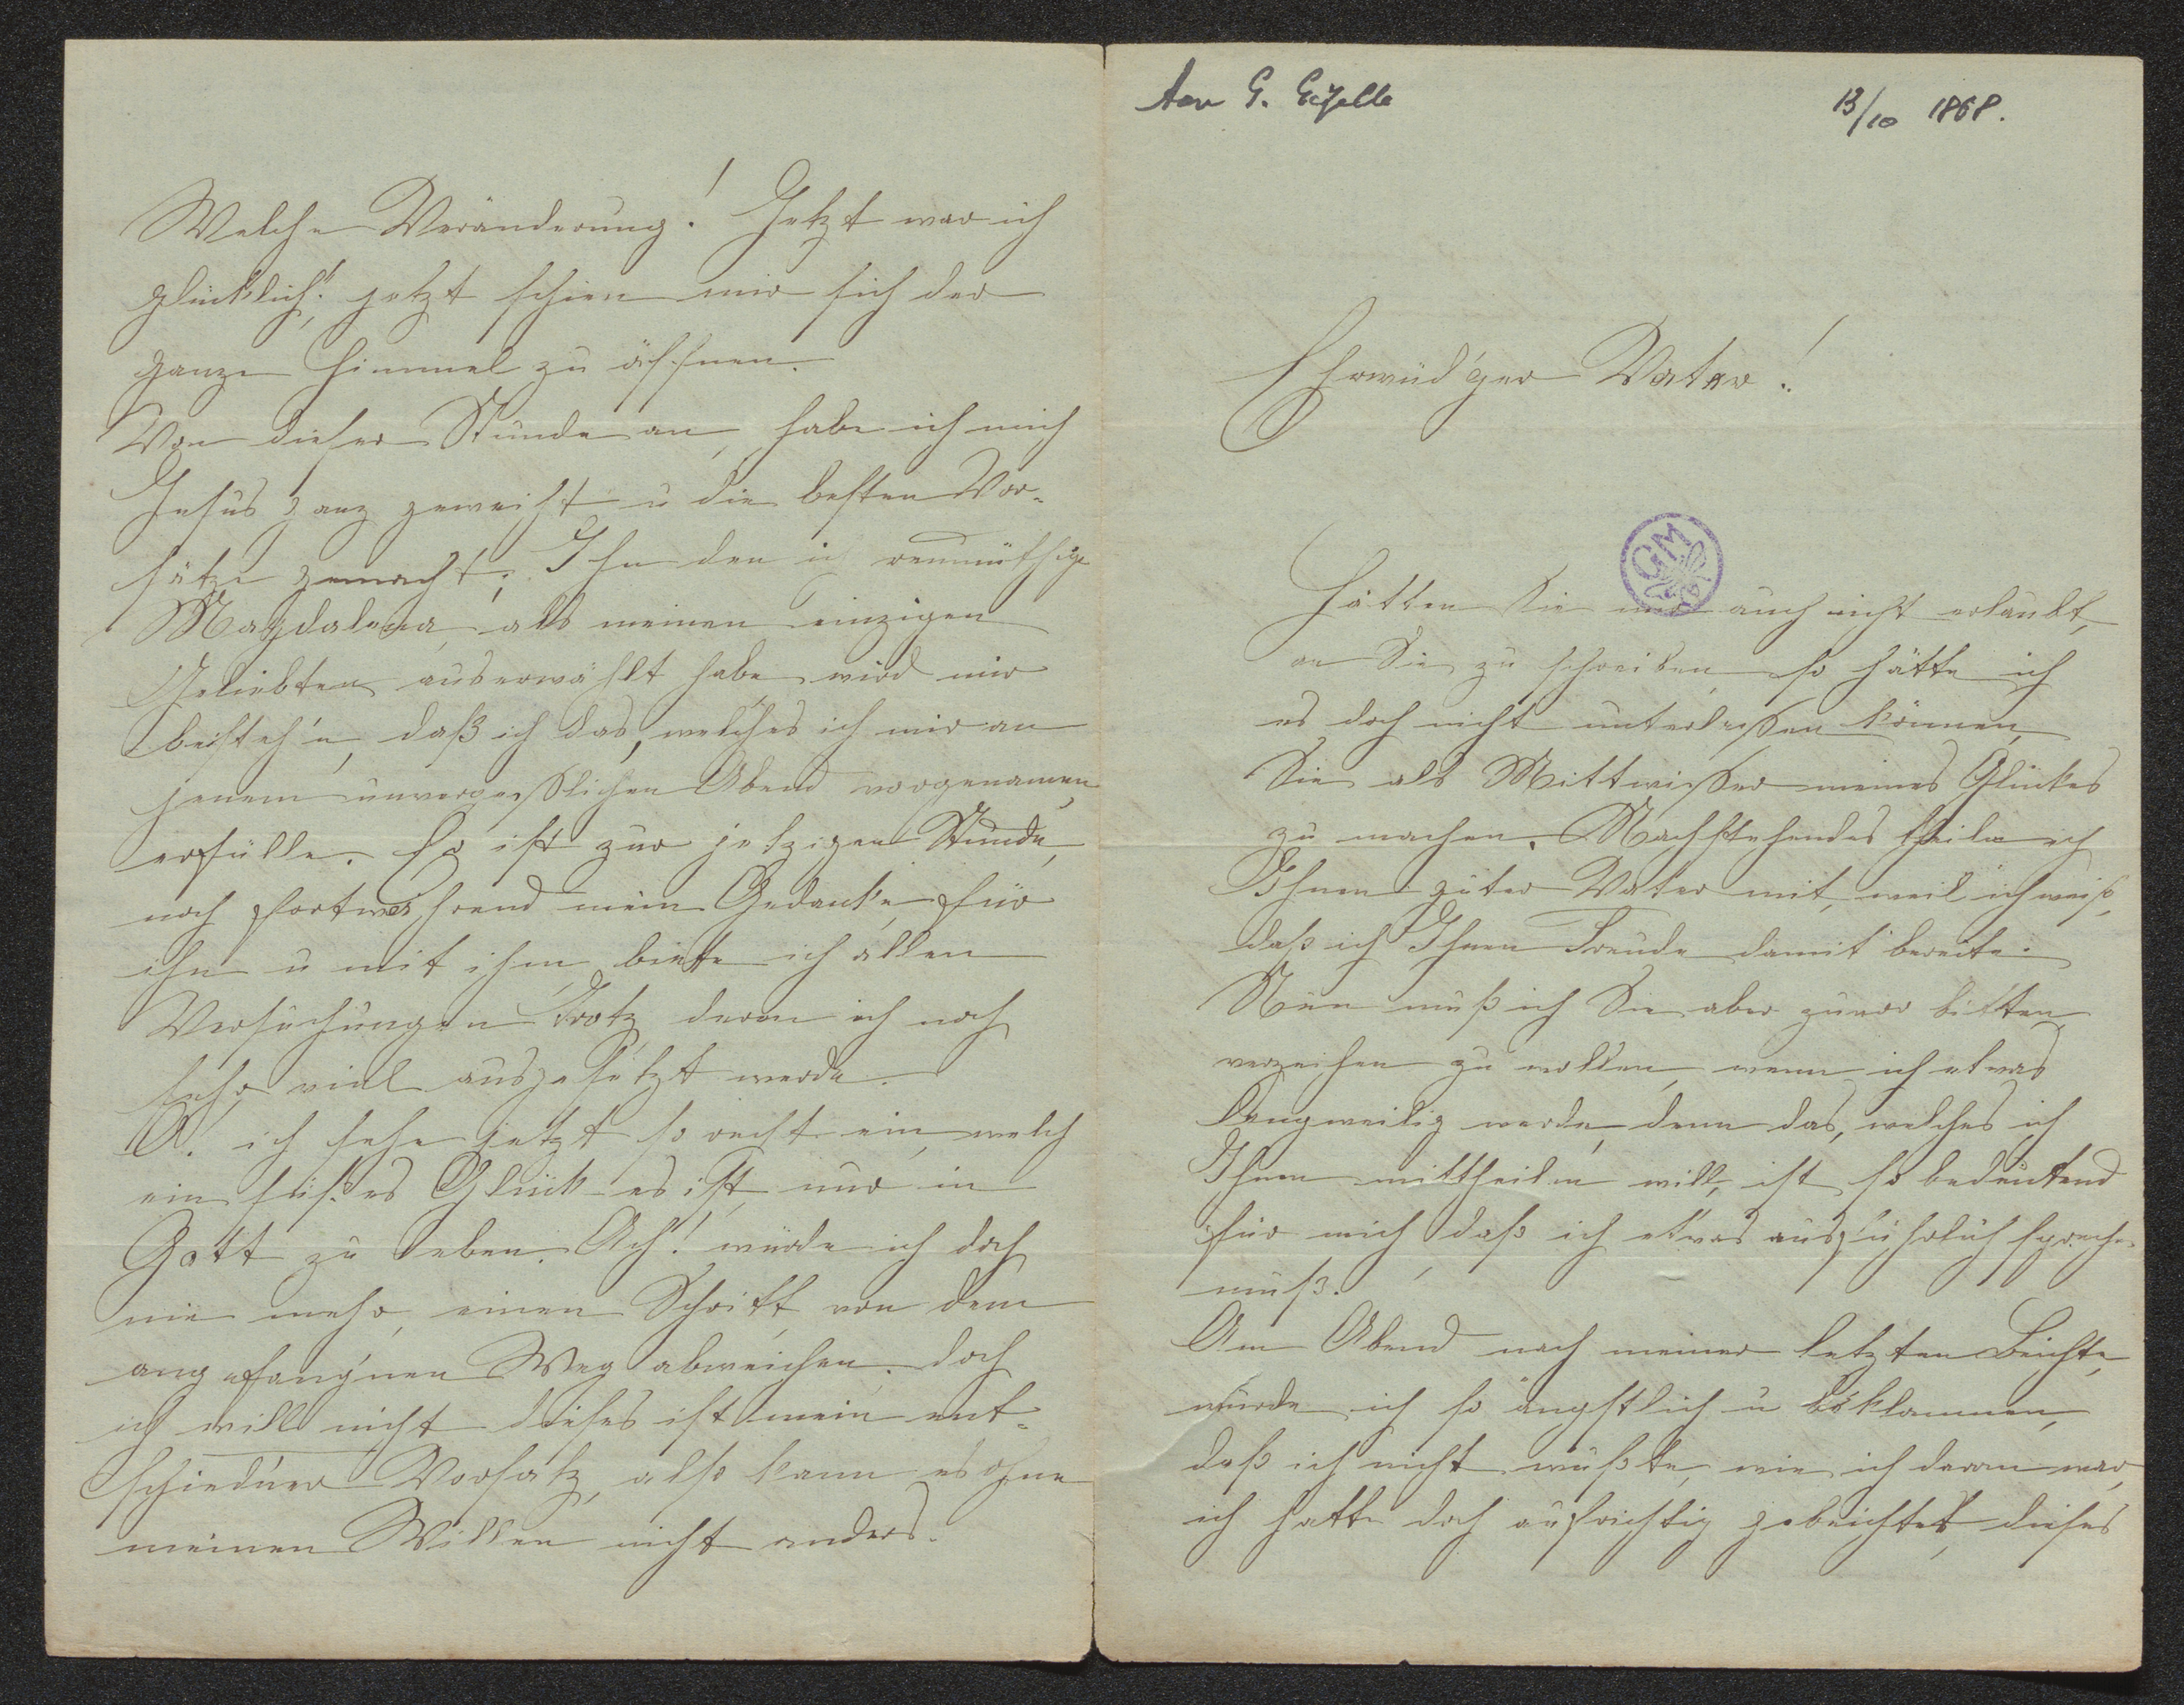 Aan G. Gezelle
13/10 1868.
Ehrwüd'ger Vater!
GM
Hätten Sie mir auch nicht erlaubt,
an Sie zu schreiben so hätte ich
es doch nicht unterlassen können,
Sie als Mittwisser meines Glückes
zu machen. Nachstehendes theile ich
Ihnen guter Vater mit, weil ich weiß,
daß ich Ihnen Freude damit bereite.
Nun muß ich Sie aber zuvor bitten,
verzeihen zu wollen, wenn ich etwas
langweilig werde, denn das, welches ich
Ihnen mittheil'n will, ist so bedeutend
für mich, daß ich etwas ausführlich sprechen
muß.
Am Abend nach meiner letzten Beichte,
wurde ich so ängstlich u beklommen,
daß ich nicht wußte, wie ich daran war,
ich hatte doch aufrichtig gebeichtet, dieses
Welche Veränderung! Jetzt war ich
glücklich! jetzt schien mir sich der
ganze Himmel zu öffnen.
Von dieser Stunde an, habe ich mich
Jesus ganz geweiht u die besten Vor-
sätze gemacht; Ihn den ich reumüthige
Magdalena, als meinen einzigen
Geliebten auserwählt habe, wird mir
beisteh'n, daß ich das, welches ich mir an
jenem unvergesslichen Abend vorgenamen,
erfülle. Er ist zur jetzigen Stunde,
noch fortwährend mein Gedanke, für
ihn u mit ihm, biette ich allen
Versuchungen Trotz deren ich noch
sehr viel ausgesetzt werde.
O! ich sehe jetzt so recht ein, welch
ein süßes Glück es ist, nur in
Gott zu leben. Ach! würde ich doch
nie mehr, einen Schritt von dem
angefang'nen Weg abweichen. doch
ich will nicht dieses ist mein ent-
schied'ner Vorsatz, also kann es ohne
meinen Willen nicht anders.